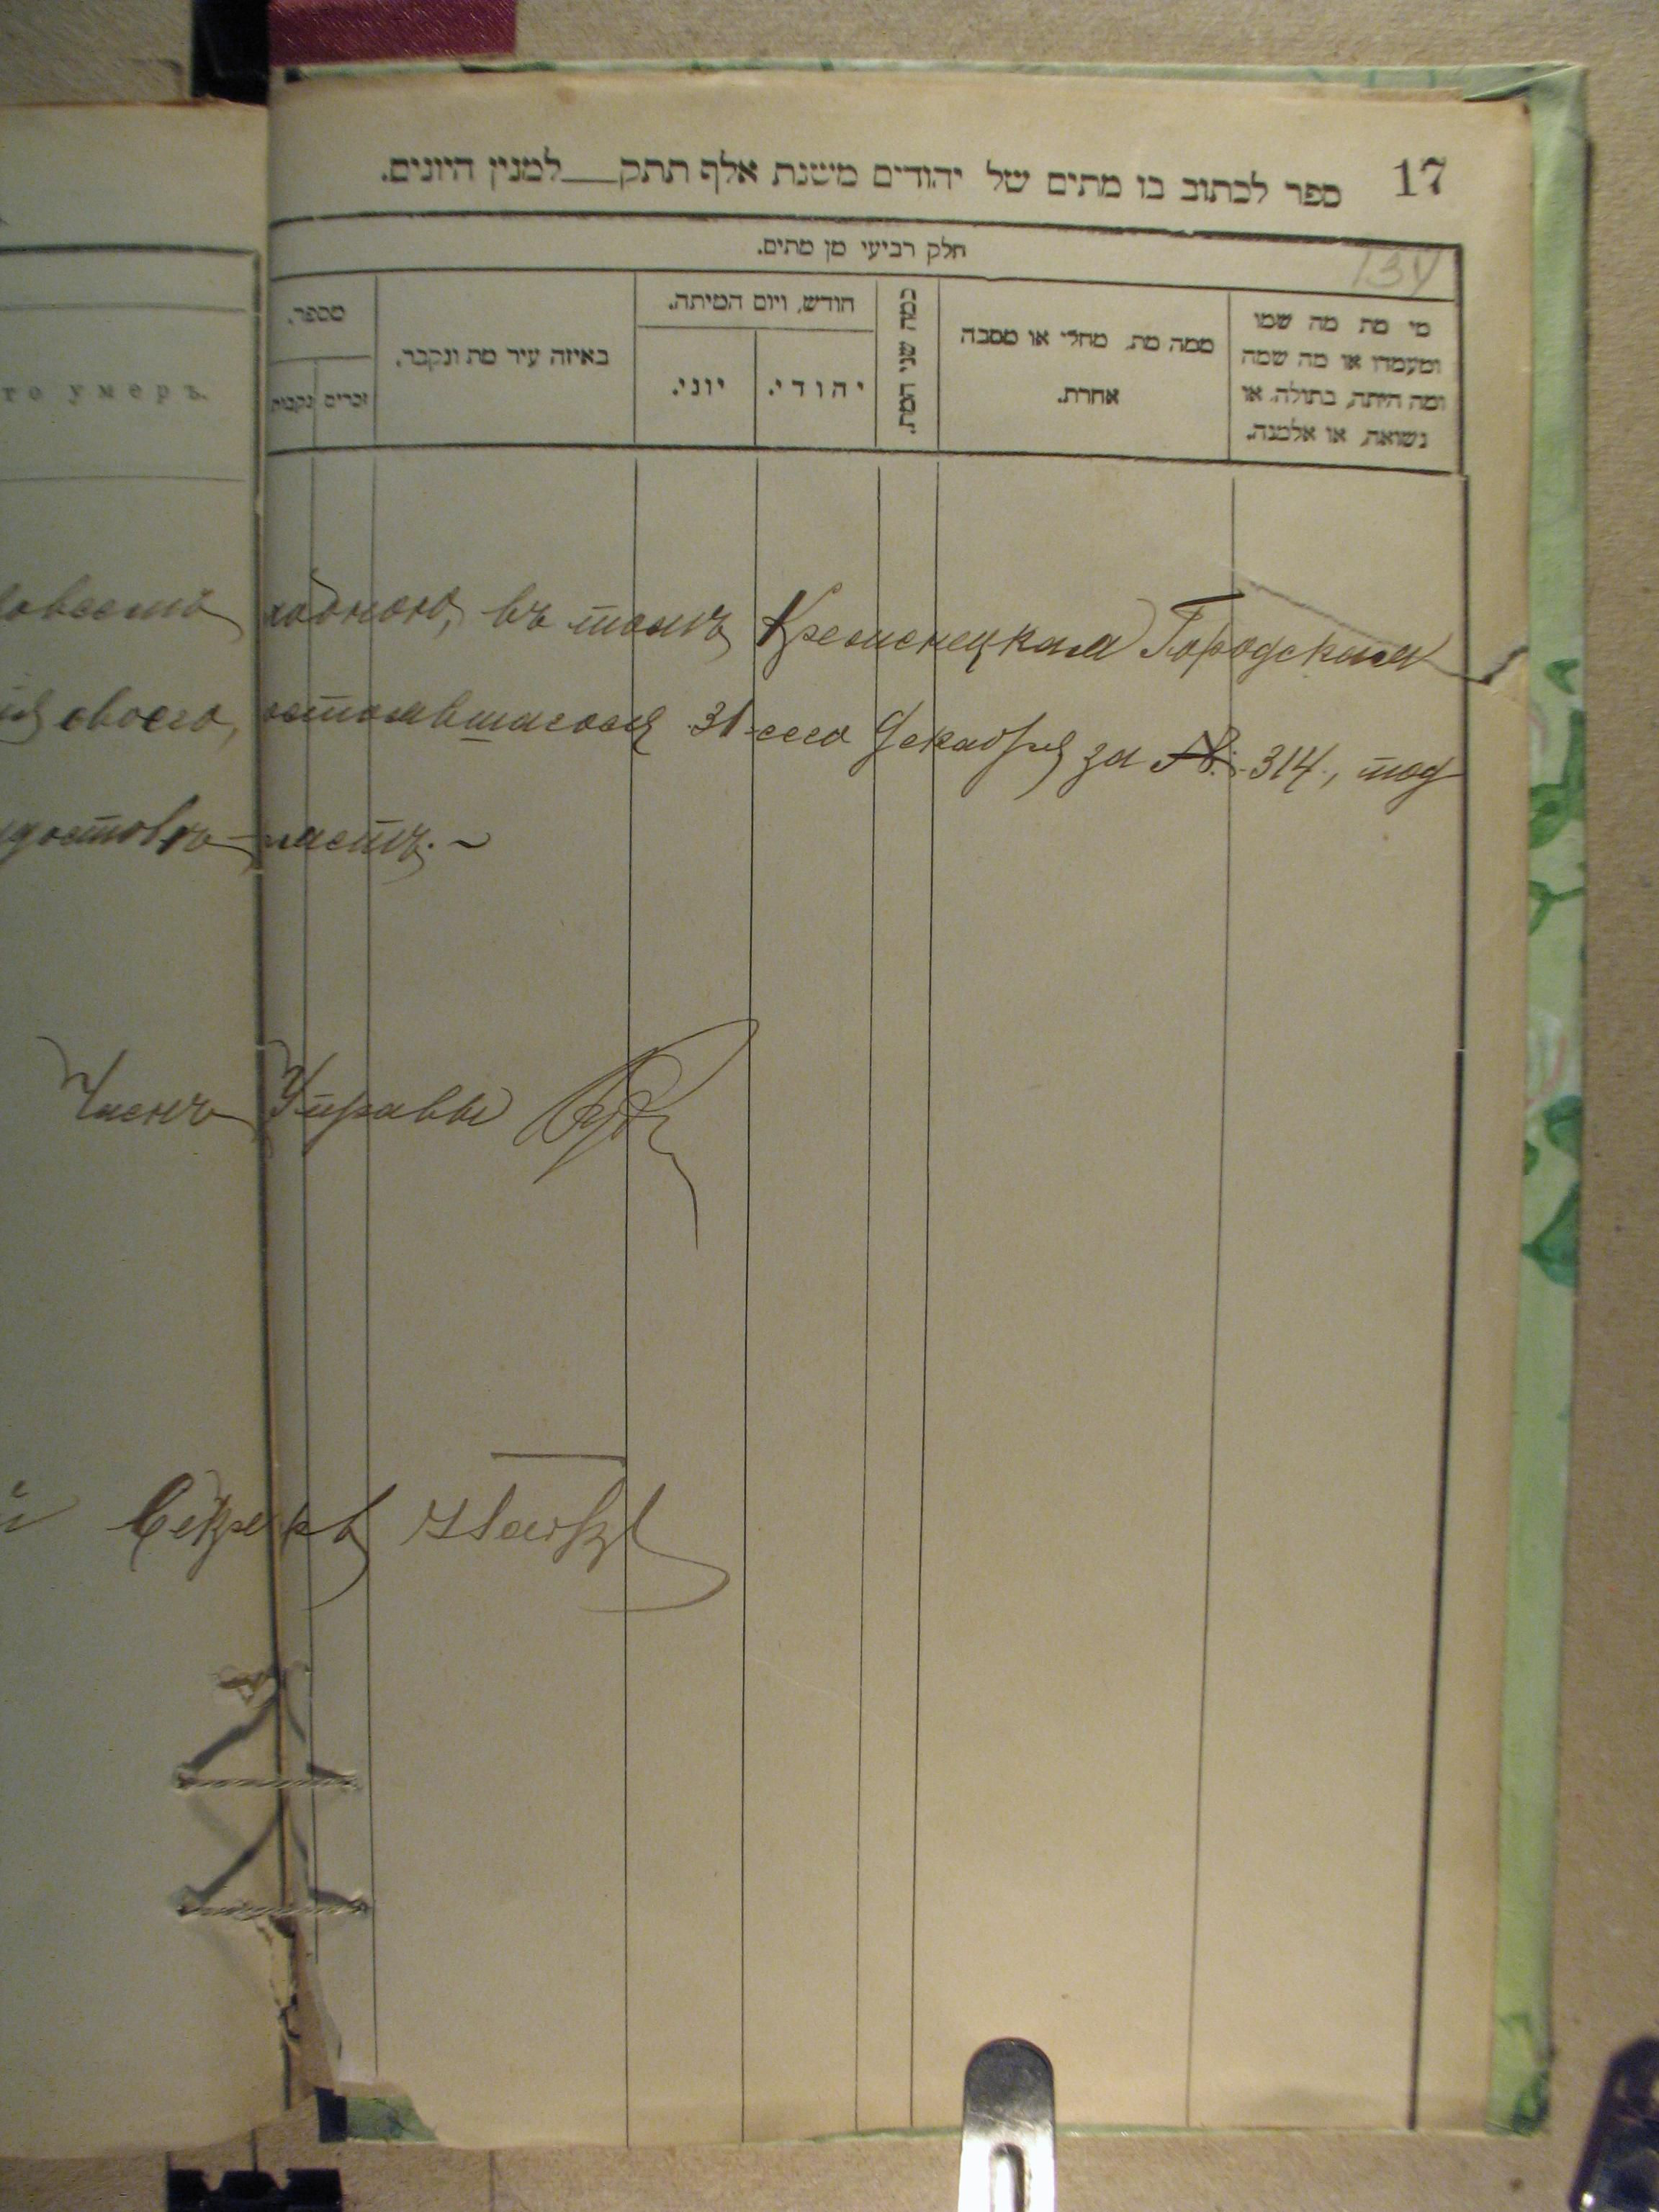 17
ספר לכתוב בו מתים של יהודים משנת אלף תתק___למנין היונים.
חלק רביעי מן מתים.
מי מת מה שמו
ומעמדו או מה שמה
ומה היתה, בתולה, או
נשואה, או אלמנה.
ממה מת, מחלי או מסבה
אחרת.
כמה שני המת.
חודש, ויום המיתה.
יהודי.
יוני.
באיזה עיר מת ונקבר.
מספר.
זכרים
נקבות
го умеръ.
въ томъ Кременецкая Городская
своего, состоявшагося 31-го Декабря за №. 314, под
Членъ Управы